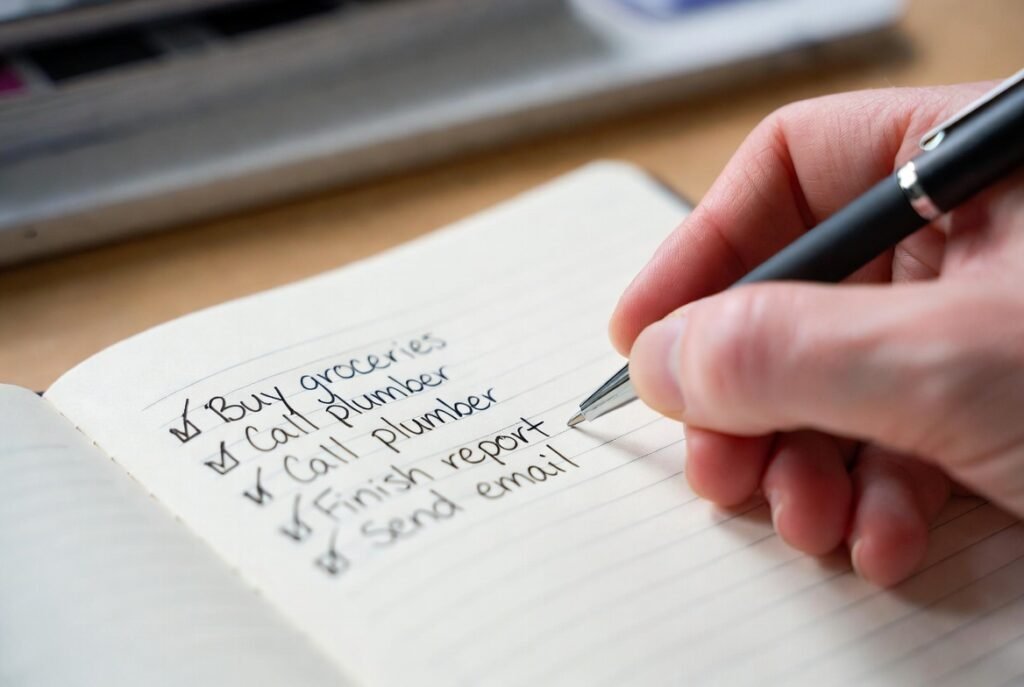 Buy groceries
Call plumber
Call plumber
Finish report
Send email